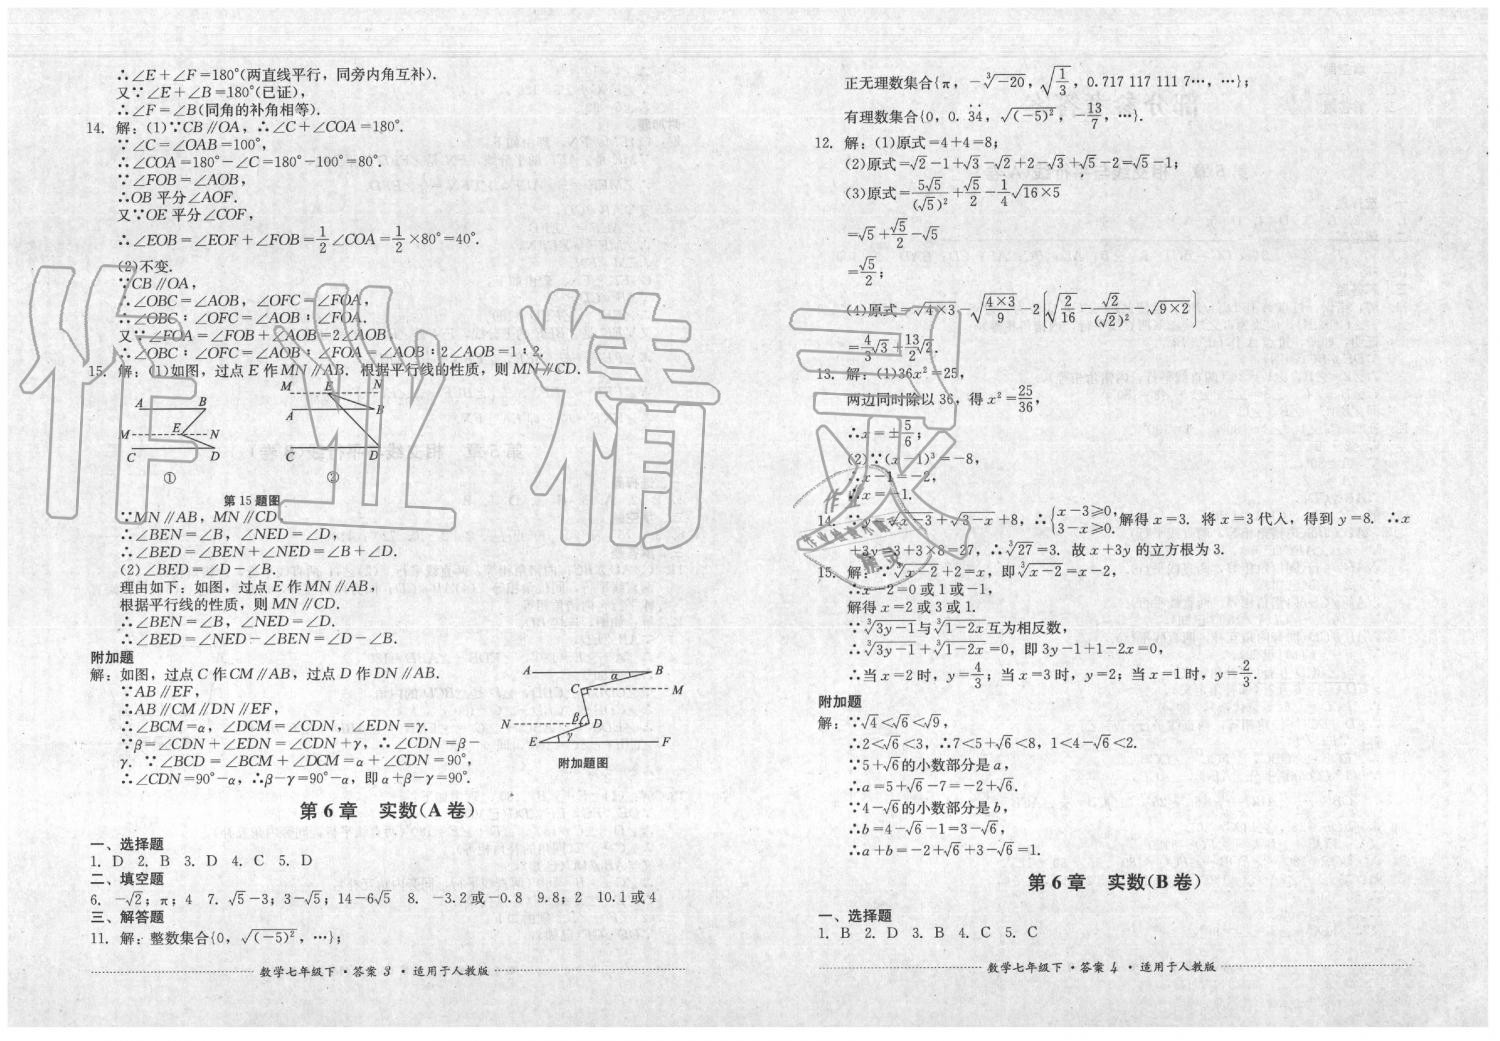 ∴∠E+∠F=180°(两直线平行，同旁内角互补).
又∵∠E+∠B=180°(已证)，
∴∠F=∠B(同角的补角相等).
14. 解：(1)∵CB∥OA，∴∠C+∠COA=180°.
∵∠C=∠OAB=100°，
∴∠COA=180°-∠C=180°-100°=80°.
∵∠FOB=∠AOB，
∴OB 平分∠AOF.
又∵OE 平分∠COF，
∴∠EOB=∠EOF+∠FOB=1/2∠COA=1/2×80°=40°.
(2)不变.
∵CB∥OA，
∴∠OBC=∠AOB，∠OFC=∠FOA，
∴∠OBC：∠OFC=∠AOB：∠FOA.
又∵∠FOA=∠FOB+∠AOB=2∠AOB，
∴∠OBC：∠OFC=∠AOB：∠FOA=∠AOB：2∠AOB=1：2.
15. 解：(1)如图，过点 E 作 MN∥AB. 根据平行线的性质，则 MN∥CD.
A B M E N C D
①
M E N A B C D
②
第 15 题图
∵MN∥AB，MN∥CD
∴∠BEN=∠B，∠NED=∠D，
∴∠BED=∠BEN+∠NED=∠B+∠D.
(2)∠BED=∠D-∠B.
理由如下：如图，过点 E 作 MN∥AB，
根据平行线的性质，则 MN∥CD.
∴∠BEN=∠B，∠NED=∠D.
∴∠BED=∠NED-∠BEN=∠D-∠B.
附加题
解：如图，过点 C 作 CM∥AB，过点 D 作 DN∥AB.
∵AB∥EF，
∴AB∥CM∥DN∥EF，
∴∠BCM=α，∠DCM=∠CDN，∠EDN=γ.
∵β=∠CDN+∠EDN=∠CDN+γ，∴∠CDN=β-
γ. ∵∠BCD=∠BCM+∠DCM=α+∠CDN=90°，
∴∠CDN=90°-α，∴β-γ=90°-α，即 α+β-γ=90°.
A α B
C M
N β D
E γ F
附加题图
第 6 章 实数(A 卷)
一、选择题
1. D 2. B 3. D 4. C 5. D
二、填空题
6. -√2；π；4 7. √5-3；3-√5；14-6√5 8. -3.2 或 -0.8 9. 8；2 10. 1 或 4
三、解答题
11. 解：整数集合{0，√(-5)²，…}；
数学七年级下·答案 3·适用于人教版
正无理数集合{π，-³√-20，√(1/3)，0.717 117 111 7…，…}；
有理数集合{0，0.3̇4̇，√(-5)²，-13/7，…}.
12. 解：(1)原式=4+4=8；
(2)原式=√2-1+√3-√2+2-√3+√5-2=√5-1；
(3)原式=5√5/(√5)²+√5/2-1/4√16×5
=√5+√5/2-√5
=√5/2；
(4)原式=√4×3-√(4×3/9)-2[√(2/16)-√2/(√2)²-√9×2]
=4/3√3+13/2√2.
13. 解：(1)36x²=25，
两边同时除以 36，得 x²=25/36，
∴x=±5/6；
(2)∵(x-1)³=-8，
∴x-1=-2，
∴x=-1.
14. ∵y=√x-3+√3-x+8，∴{x-3≥0, 3-x≥0. 解得 x=3. 将 x=3 代人，得到 y=8. ∴x
+3y=3+3×8=27，∴³√27=3. 故 x+3y 的立方根为 3.
15. 解：∵³√x-2+2=x，即³√x-2=x-2，
∴x-2=0 或 1 或 -1，
解得 x=2 或 3 或 1.
∵³√3y-1与³√1-2x互为相反数，
∴³√3y-1+³√1-2x=0，即 3y-1+1-2x=0，
∴当 x=2 时，y=4/3；当 x=3 时，y=2；当 x=1 时，y=2/3.
附加题
解：∵√4<√6<√9，
∴2<√6<3，∴7<5+√6<8，1<4-√6<2.
∵5+√6的小数部分是 a，
∴a=5+√6-7=-2+√6.
∵4-√6的小数部分是 b，
∴b=4-√6-1=3-√6，
∴a+b=-2+√6+3-√6=1.
第 6 章 实数(B 卷)
一、选择题
1. B 2. D 3. B 4. C 5. C
数学七年级下·答案 4·适用于人教版
作业精灵